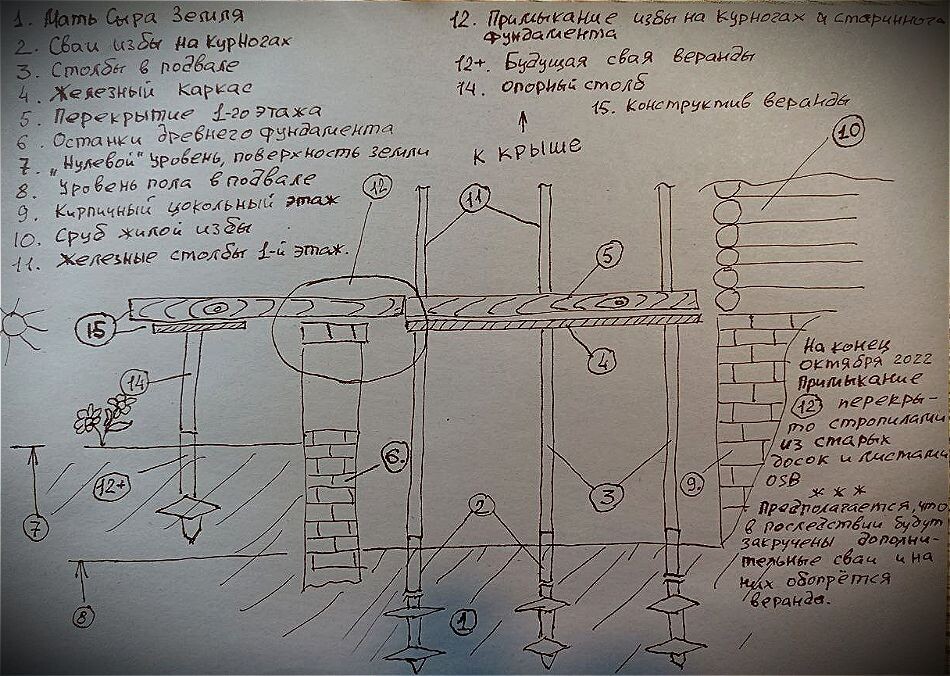 1. Мать Сыра Земля
2. Сваи избы на КурНогах
3. Столбы в подвале
4. Железный каркас
5. Перекрытие 1-го этажа
6. Останки древнего фундамента
7. „Нулевой" уровень, поверхность земли
8. Уровень пола в подвале
9. Кирпичный цокольный этаж
10. Сруб жилой избы
11. Железные столбы 1-й этаж.
12. Примыкание избы на Курногах и старинного
фундамента
12+. Будущая свая веранды
14. опорный столб
15. Конструктив веранды
К КРЫШЕ
10
12
11
5
15
4
14
6.
12+
3
9.
2
7
8
1
На конец
октября 2022
Примыкание
12 перекры-
то стропилами
из старых
досок и листами
OSB
* * *
Предполагается, что
в последствии будут
закручены дополни-
тельные сваи и на
них обопрётся
веранда.